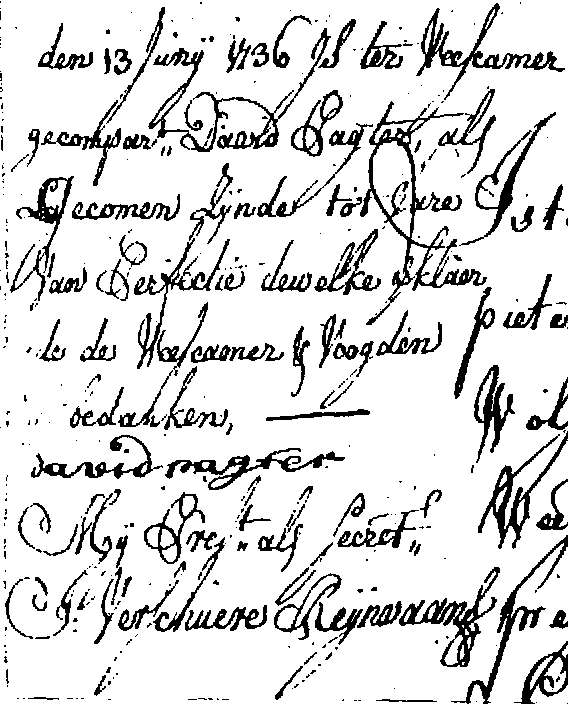 den 13 Junij 1736 Is ter Weescamer
gecompart. Daavid Pagter, als
gecomen zijnde tot hare
Van Perfectie dewelke verklaer
de de Weescamer & Voogden
bedanken,
david pagter
Mij Pres.t als Secret.s
P. Verschuere Reijnvaan
Ist
piet
Wol
Wee